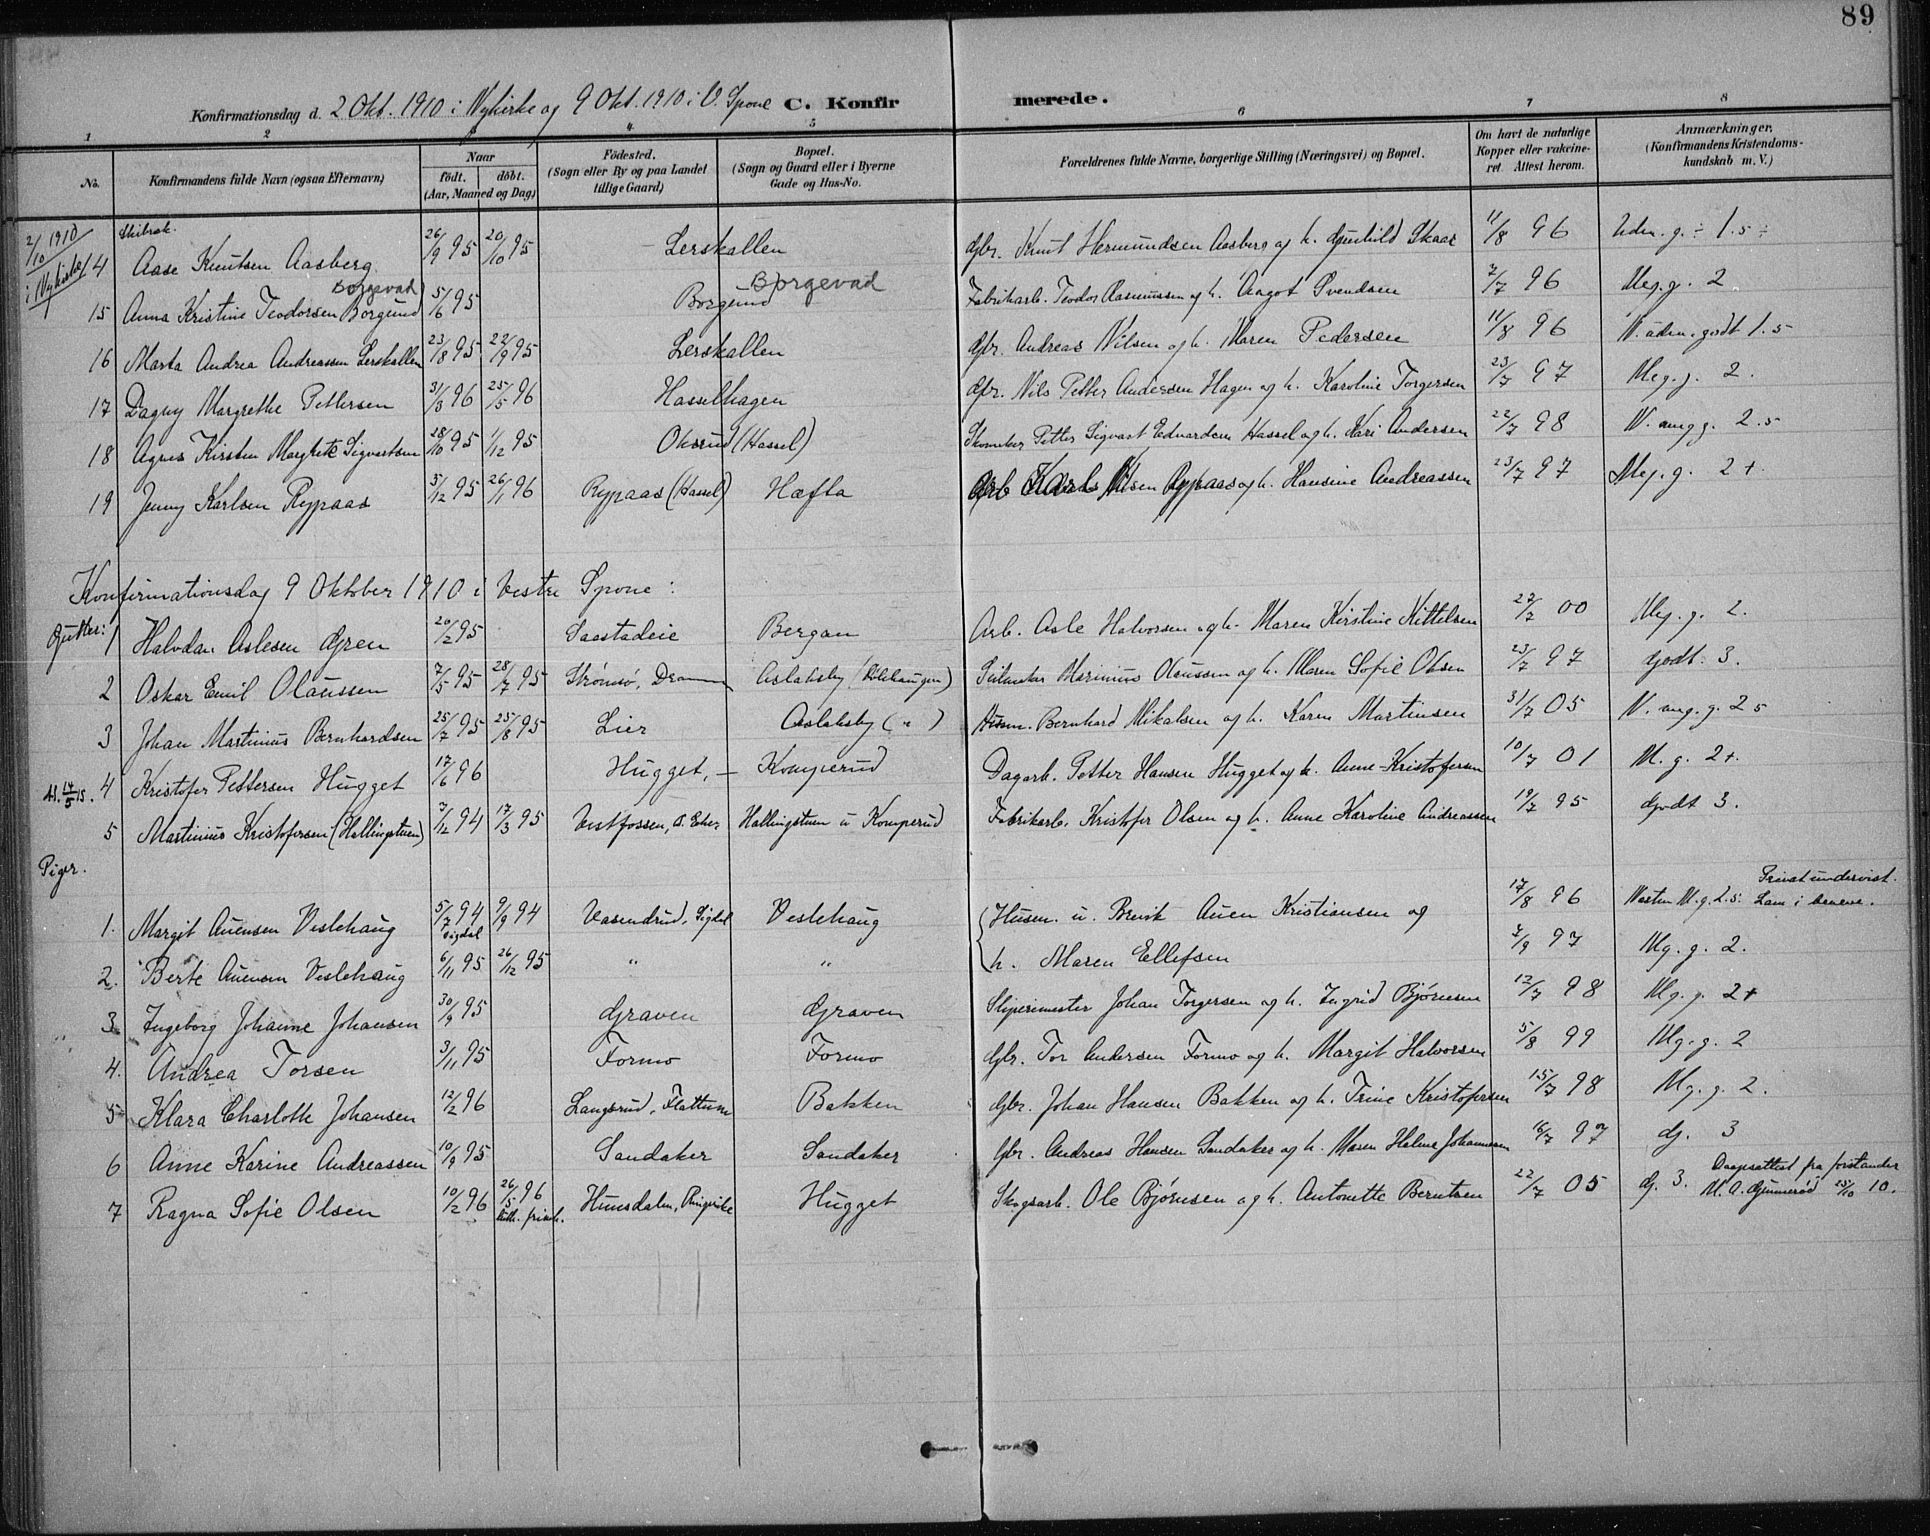 89
Konfirmationsdag d. 2 Okt. 1910 i Nykirke og 9 Okt. 1910 i V. Spone C. Konfirmerede.
1 2 3 4 5 6 7 8
No. Konfirmandens fulde Navn (ogsaa Efternavn) Naar født. døbt. (Aar, Maaned og Dag) Fødested. (Sogn eller By og paa Landet tillige Gaard) Bopæl. (Sogn og Gaard eller i Byerne Gade og Hus-No. Forældrenes fulde Navne, borgerlige Stilling (Næringsvei) og Bopæl. Om havt de naturlige Kopper eller vaccineret Attest herom. Anmærkninger. (Konfirmandens Kristendomskundskab m. V.)
2/10 1910 i Nykirke
14 Aase Knutsen Aasberg 26/9 95 20/10 95 Lerskallen Gbr. Knut Hermundsen Aasberg og h. Gunhild Skaar 11/8 96 Udm. g. ÷ 1.5 ÷
15 Anna Kristine Teodorsen Borgund Borgevad 5/6 95 Borgund Borgevad Fabrikarb. Teodor Rasmussen og h. Aagot Svendsen 7/7 96 Meg. g. 2
16 Marta Andrea Andreassen Lerskallen 23/8 95 22/9 95 Lerskallen Gbr. Andreas Nilsen og h. Maren Pedersen 11/8 96 N. udm. godt 1.5
17 Dagny Margrethe Pettersen 31/3 96 25/5 96 Hasselhagen Gbr. Nils Petter Andersen Hagen og h. Karoline Torgersen 23/7 97 Meg. g. 2.
18 Agnes Kirsten Margrete Sigvartsen 28/10 95 1/12 95 Oksrud (Hassel) Petter Sigvart Edvardsen Hassel og h. Kari Andersen 22/7 98 N. meg g. 2.5
19 Jenny Karlsen Rypaas 31/12 95 26/1 96 Rypaas (Hassel) Hæfta Arb Karl Nilsen Rypaas og h. Hansine Andreassen 23/7 97 Meg. g. 2+
Konfirmationsdag 9 Oktober 1910 i Vestre Spone:
Gutter:
1 Halvdan Aslesen Gren 20/2 95 Saastadeie Bergan Arb. Asle Halvorsen og h. Maren Kirstine Kittelsen 27/7 00 Meg. g. 2.
2 Oskar Emil Olaussen 7/5 95 28/7 95 Strømsø, Drammen Aslaksby Seilmaker Marinius Olaussen og h. Maren Sofie Olsen 23/7 97 Godt. 3.
3 Johan Martinius Bernhardsen 25/7 95 25/8 95 Lier Aslaksby ( " ) Husm. Bernhard Mikalsen og h. Karen Martinsen 31/7 05 N. meg. g. 2 5
At. 14/5 15. 4 Kristofer Pettersen Hugget 17/6 96 Hugget, — Komperud Dagarb. Petter Hansen Hugget og h. Anne Kristofersen 10/7 01 M. g. 2+.
5 Martinius Kristofersen (Hallingstuen) 7/12 94 17/3 95 Vestfossen, Ø. Eker Hallingstuen u Komperud Fabrikarb. Kristofer Olsen og h. Anne Karoline Andreassen 19/7 95 Godt 3.
Piger.
1. Margit Auensen Veslehaug 5/7 94 Sigdal 9/9 94 Vasendrud, Sigdal Veslehaug Husm. u. Brevik Auen Kristiansen og 17/8 96 Næsten M. g. 2.5. Privat undervist.
2. Berte Auensen Veslehaug 6/11 95 26/12 95 " " h. Maren Ellefsen 7/9 97 Mg. g. 2.
3 Ingeborg Johanne Johansen 30/9 95 Graven Graven Sliperimester Johan Torgersen og h. Ingrid Bjørnsen 12/7 98 Mg. g. 2+
4. Andrea Torsen 3/11 95 Formo Formo Gbr. Tor Andersen Formo og h. Margit Halvorsen 5/8 99 Mg. g. 2
5 Klara Charlotte Johansen 12/2 96 Langsrud, Flattum Bakken Gbr. Johan Hansen Bakken og h. Trine Kristofersen 15/7 98 Mg. g. 2.
6 Anne Karine Andreassen 10/9 95 Sandaker Sandaker Gbr. Andreas Hansen Sandaker og h. Maren Helene Johannesen 16/7 97 G. 3
7 Ragna Sofie Olsen 10/2 96 26/5 96 Luth. frim. Hunsdalen, Ringerike Hugget Skogsarb. Ole Bjørnsen og h. Antonette Berntsen 22/7 05 G. 3. Daapsattest fra forstander M. A. Gunnerød 25/10 10.